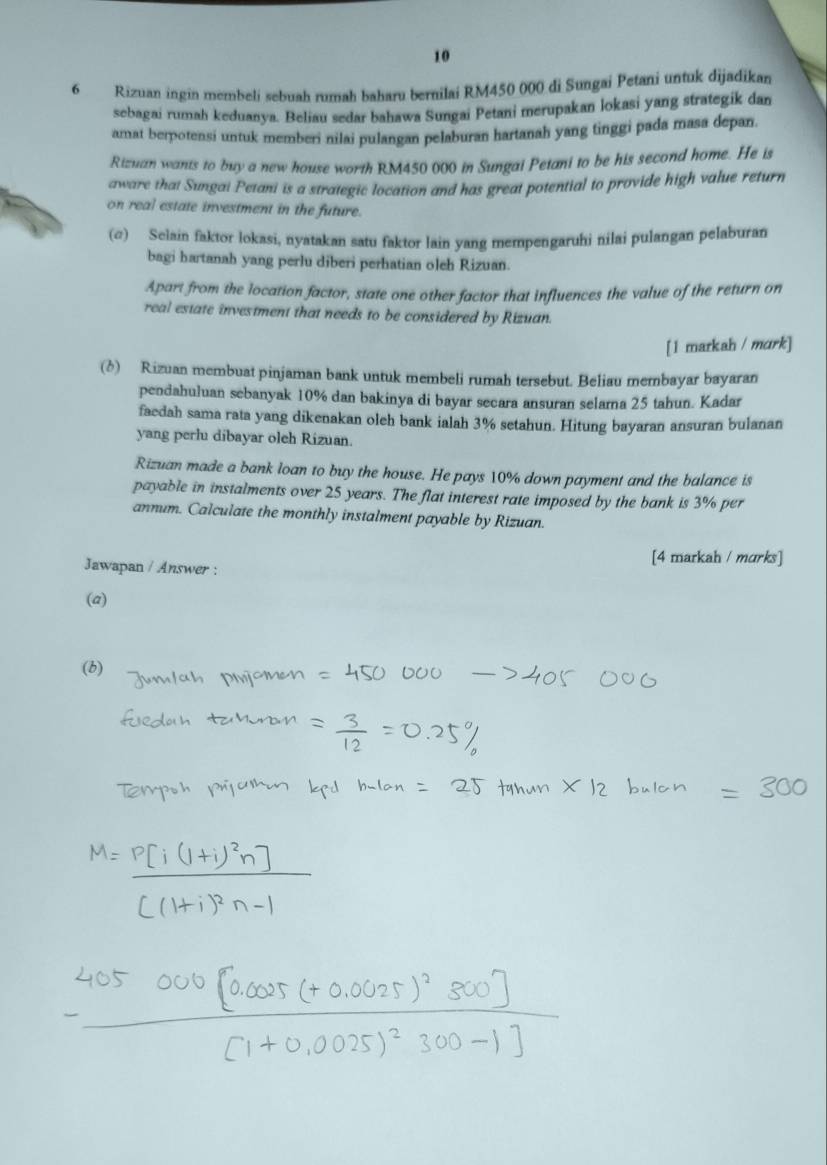 10
6 Rizuan ingin membeli sebuah rumah baharu bernilai RM450 000 di Sungai Petani untuk dijadikan
sebagai rumah keduanya. Beliau sedar bahawa Sungai Petani merupakan lokasi yang strategik dan
amat berpotensi untuk memberi nilai pulangan pelaburan hartanah yang tinggi pada masa depan.
Rizuan wants to buy a new house worth RM450 000 in Sungai Petani to be his second home. He is
aware that Sungai Petani is a strategic location and has great potential to provide high value return
on real estate investment in the future.
(a) Selain faktor lokasi, nyatakan satu faktor lain yang mempengaruhi nilai pulangan pelaburan
bagi hartanah yang perlu diberi perhatian oleh Rizuan.
Apart from the location factor, state one other factor that influences the value of the return on
real estate investment that needs to be considered by Rizuan.
[1 markah / mark]
(b) Rizuan membuat pinjaman bank untuk membeli rumah tersebut. Beliau membayar bayaran
pendahuluan sebanyak 10% dan bakinya di bayar secara ansuran selama 25 tahun. Kadar
faedah sama rata yang dikenakan oleh bank ialah 3% setahun. Hitung bayaran ansuran bulanan
yang perlu dibayar oleh Rizuan.
Rizuan made a bank loan to buy the house. He pays 10% down payment and the balance is
payable in instalments over 25 years. The flat interest rate imposed by the bank is 3% per
annum. Calculate the monthly instalment payable by Rizuan.
[4 markah / marks]
Jawapan / Answer :
(a)
(b) Jumlah = 450 000 -> 405 000
= 3/12 = 0.25%
Tempoh kpd bulan = 25 tahun × 12 bulan = 300
M = P[i(1+i)²n]
[(1+i)²n-1
405 000 [0.0025 (+ 0.0025)² 300]
[1+0.0025)² 300-1]